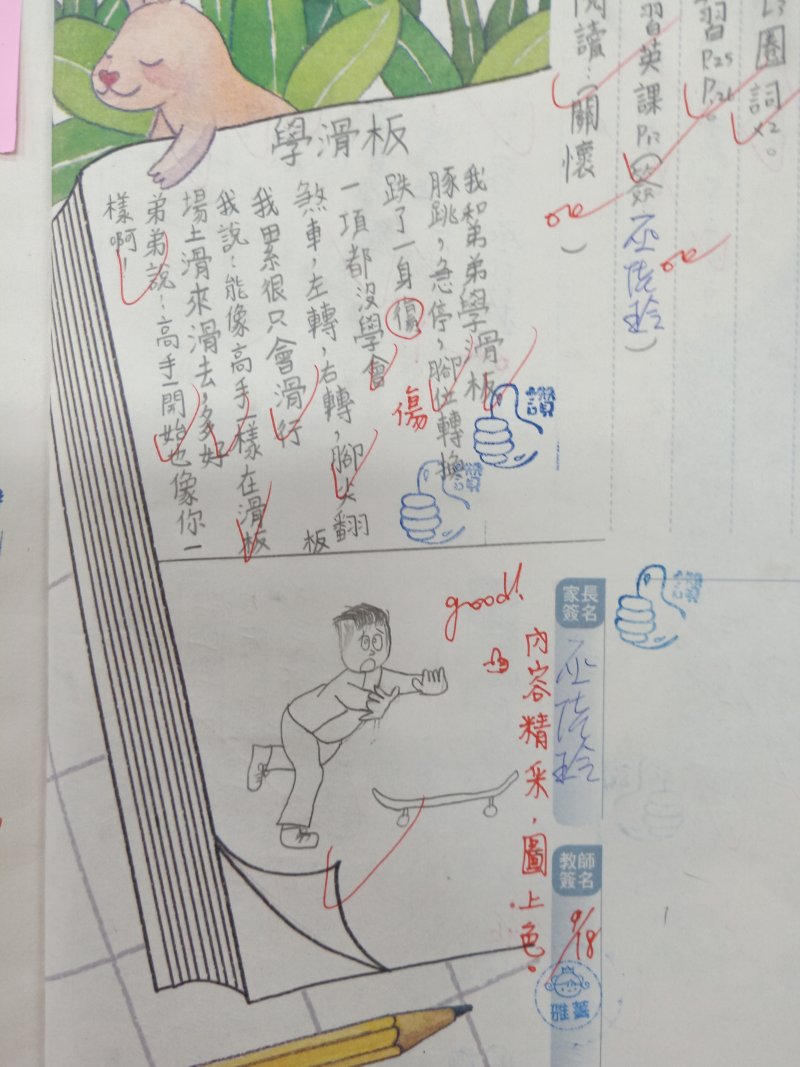 圈詞x2。
習P.25
P.26。
習英課P.12
閱讀:(關懷
)
學滑板
我和弟弟學滑板
豚跳,急停,腳位轉換
跌了一身傷
一項都沒學會
煞車,左轉,右轉,腳尖翻板
我累很只會滑行
我說:能像高手一樣在滑板
場上滑來滑去,多好
弟弟說:高手一開始也像你一
樣啊!
傷
讚
讚
讚
good!
內容精采,圖上色。
家長簽名
教師簽名
9/18